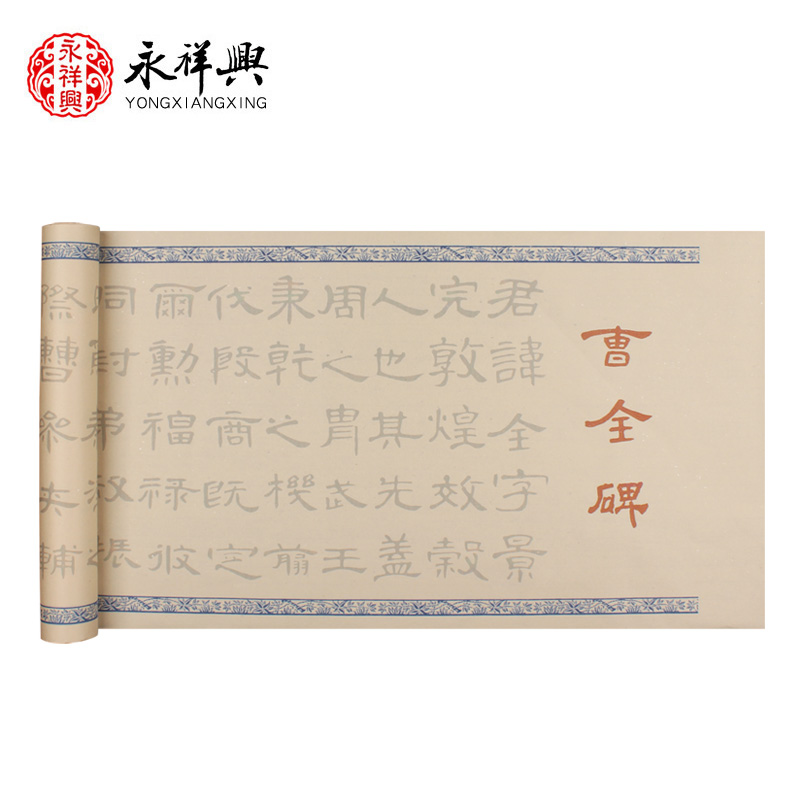 永祥興
永祥興
YONGXIANGXING
曹全碑
君諱全字景
完敦煌效穀
人也其先蓋
周之胄武王
秉乾之機翦
伐殷商既定
爾勳福祿攸
同封弟叔振
際曹參夾輔